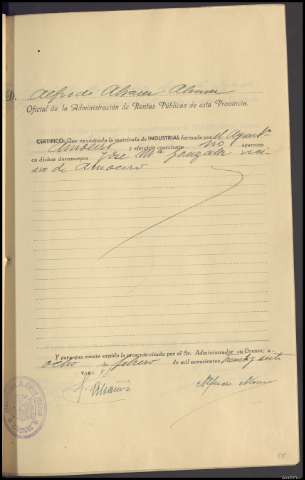 D. Alfredo Alvarez Alonso
Oficial de la Administración de Rentas Públicas de esta Provincia.
CERTIFICO: Que examinada la matrícula de INDUSTRIAS formada por el Ayunt.º
y ejercicio corriente no aparece
en dichos documentos José Mª González veci
no de Amoeiro
Y para que conste expido la presente visada por el Sr. Administrador en Orense, a
ocho de febrero de mil novecientos treinta y siete